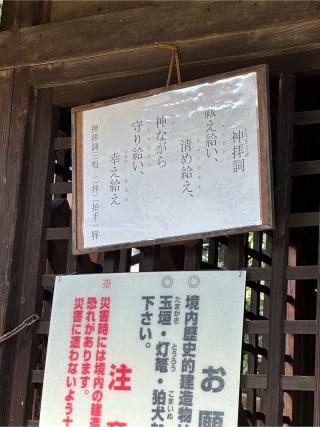 神拝詞
祓え給い、
清め給え、
神ながら
守り給い、
幸え給え
神拝詞三唱 二拝二拍手一拝
お願
◎境内歴史的建造物
◎玉垣・灯篭・狛犬
たまがき とうろう こまいぬ
下さい。
注
※災害時には境内の建造
恐れがあります。
災害に遭わないよう十